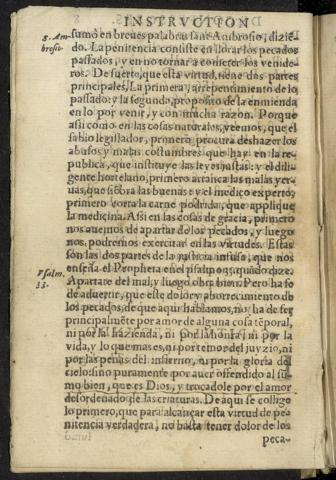 INSTRVCTION
S. Ambrosio.
sumó en breues palabras sant Ambrosio, dizié
do. La penitencia consiste en llorar los pecados
passados, y en no tornar a cometer los venide-
ros. De suerte, que esta virtud, tiene dos partes
principales, La primera, arrepentimiento de lo
passado: y la segunda, proposito de la enmienda
en lo por venir, y con mucha razon. Porque
assi como en las cosas naturales, veemos, que el
sabio legislador, primero procura deshazer los
abusos y malas costumbres que hay en la re-
publica, que instituye las leyes justas: y el dili-
gente hortelano, primero arranca las malas yer-
uas, que siébra las buenas: y el medico experto,
primero corta la carne podrida, que applique
la medicina. Assi en las cosas de gracia, primero
nos auemos de apartar de los pecados, y luego
nos podremos exercitar en las virtudes. Estas
son las dos partes de la justicia infusa, que nos
enseña el Propheta en el psalmo
Psalm.
33.
Apartate del mal, y luego obra bien. Pero ha se
de aduertir, que este dolor y aborrecimiento de
los pecados, de que aqui hablamos, no ha de ser
principalméte por amor de alguna cosa téporal,
ni por la hazienda, ni por la honra, ni por la
vida, y lo que mas es, ni por temor del juyzio, ni
por las penas del infierno, ni por la gloria del
cielo: sino puramente por auer offendido al su-
mo bien, que es Dios, y trocadole por el amor
desordenado de las criaturas. De aqui se collige
lo primero, que para alcançar esta virtud de pe-
nitencia verdadera, no basta tener dolor de los
peca-